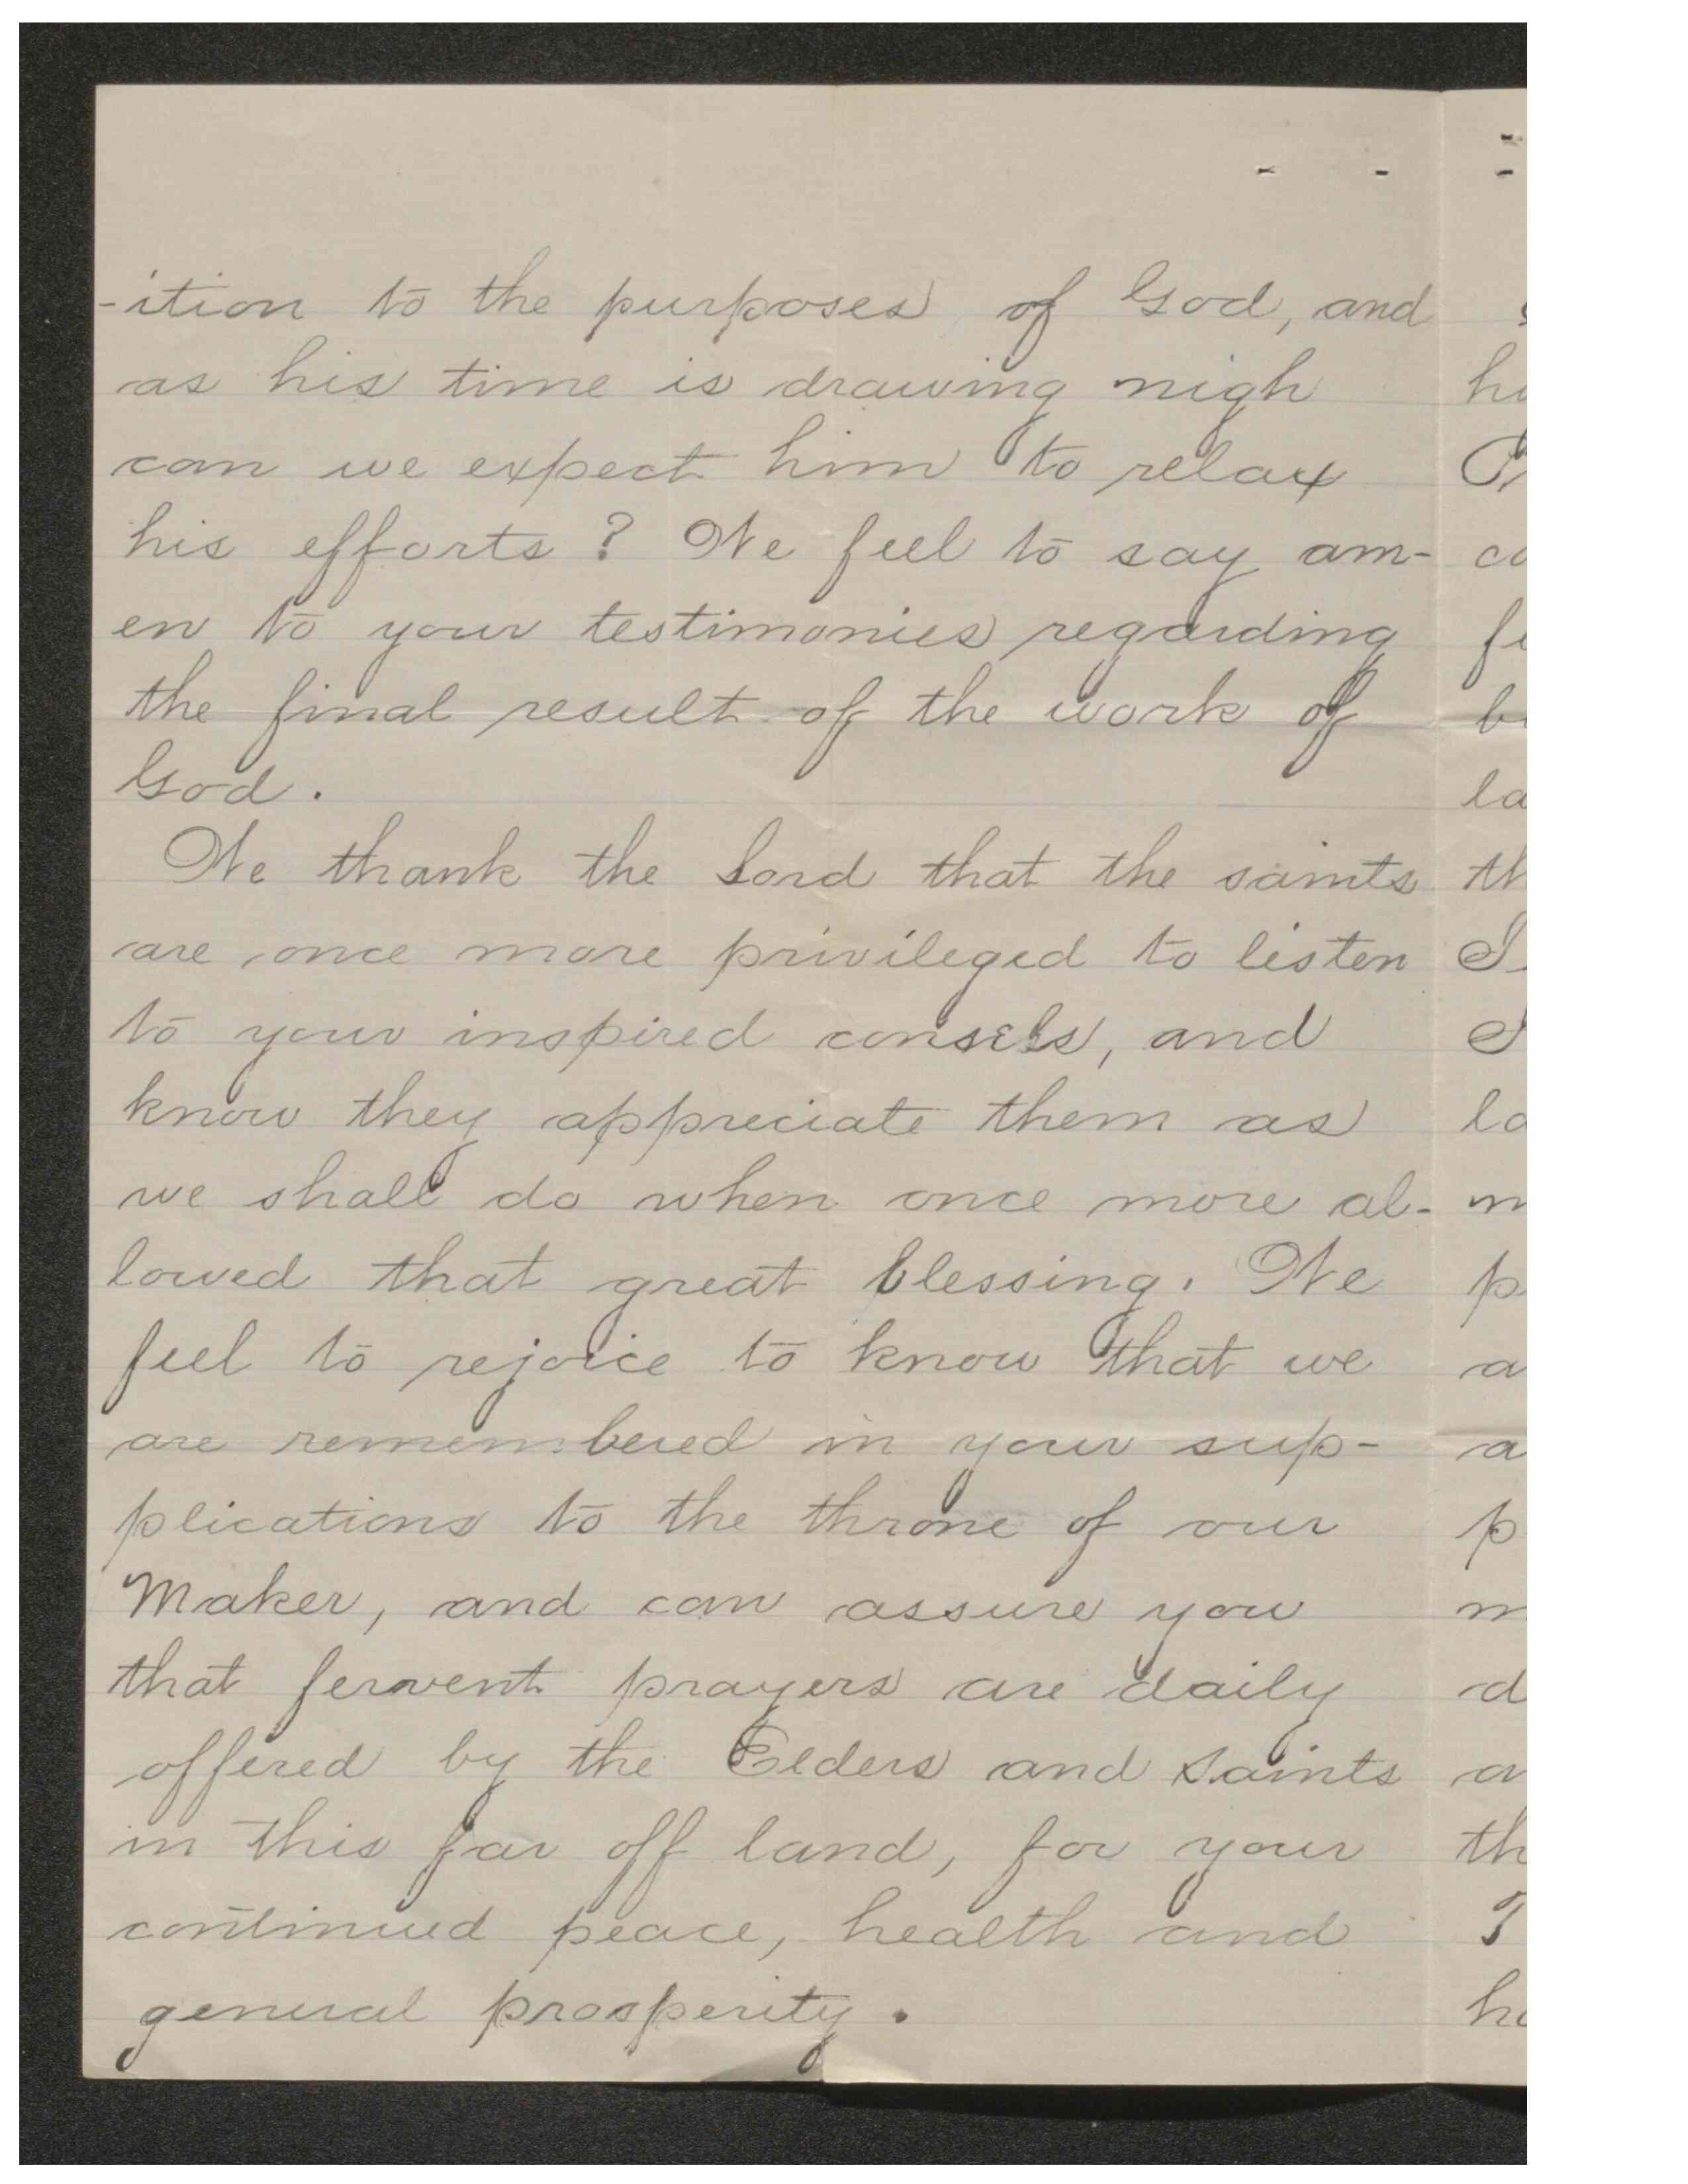 -ition to the purposes of God, and
as his time is drawing nigh
can we expect him to relax
his efforts? We feel to say am-
en to your testimonies regarding
the final result of the work of
God.
We thank the Lord that the saints
are once more privileged to listen
to your inspired consels, and
know they appreciate them as
we shall do when once more al-
lowed that great blessing. We
feel to rejoice to know that we
are remembered in your sup-
plications to the throne of our
Maker, and can assure you
that fervent prayers are daily
offered by the Elders and Saints
in this far off land, for your
continued peace, health and
general prosperity.